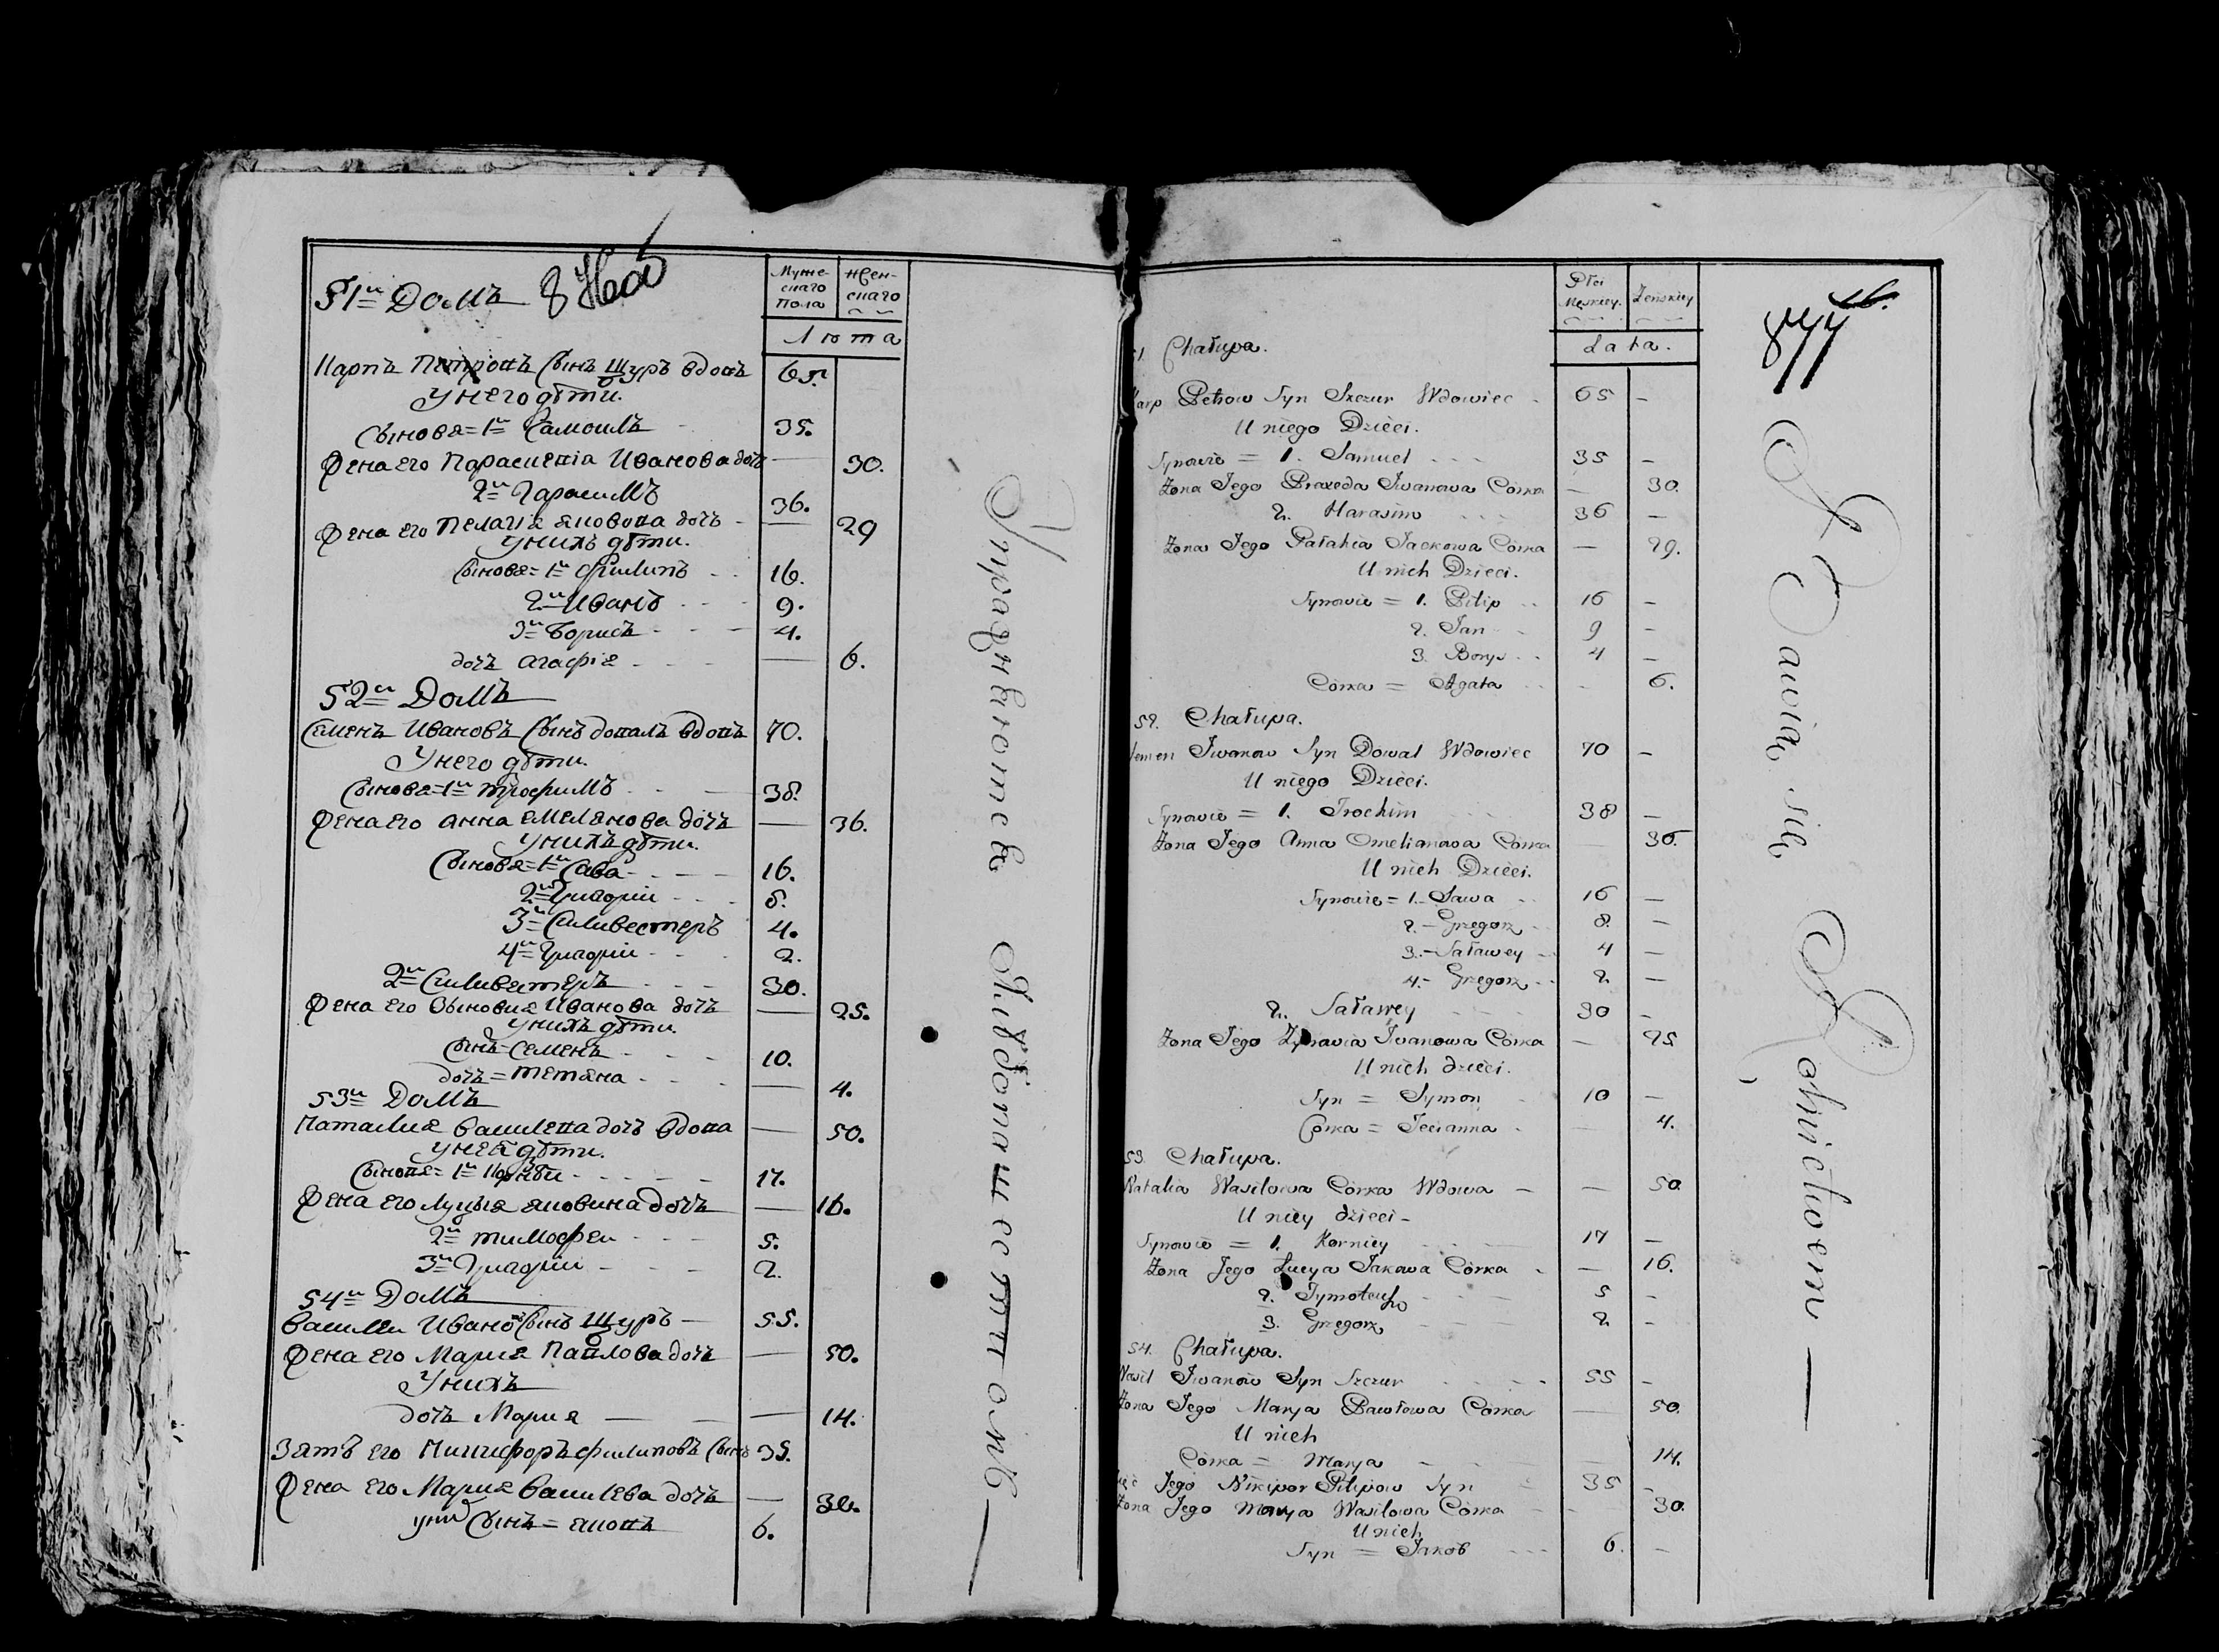 51й Домъ
Муже-
скаго
пола
Жен-
скаго
Лѣта
Карпъ Петровъ Сынъ Щуръ вдовъ 65.
У него дѣти.
Сыновя = 1й Самоилъ 35.
Жена его Параскевія Иванова дочъ — 30.
2й Гарасимъ 36.
Жена его Пелагія Яковова дочъ — 29
У нихъ дѣти.
Сыновя = 1й Филипъ 16.
2й Иванъ 9.
3й Борисъ 4.
дочъ Агафія — 6.
52й Домъ
Семенъ Ивановъ Сынъ Довалъ вдовъ 70.
У него дѣти.
Сыновя = 1й Трофимъ 38.
Жена его Анна Емелянова дочъ — 36.
У нихъ дѣти.
Сыновя = 1й Сава 16.
2й Григорій 8.
3й Силивестеръ 4.
4й Григорій 2.
2й Силивестеръ 30.
Жена его Зыновия Иванова дочъ — 25.
У нихъ дѣти.
Сынъ = Семенъ 10.
дочъ = Тетяна — 4.
53й Домъ
Наталия Василева дочъ вдова — 50.
У ней дѣти.
Сыновя = 1й Корнѣй 17.
Жена его Луцыя Яковина дочъ — 16.
2й Тимофей 5.
3й Григорий 2.
54й Домъ
Василий Ивановъ Сынъ Щуръ 55.
Жена его Мария Павлова дочъ — 50.
У нихъ
дочъ Мария — 14.
Зять его Никифоръ Филиповъ Сынъ 35.
Жена его Мария Василева дочъ — 30.
У них Сынъ = Яковъ 6.
Упражняются Хлѣбопашествомъ —
Płci
Męskiey.
Żeńskiey
Lata.
877
51. Chałupa.
Karp Petrow Syn Szczur Wdowiec 65 –
U niego Dzieci.
Synowie = 1. Samuel 35 –
Żona Jego Praxeda Iwanowa Córka — 30.
2. Harasim 36 –
Żona Jego Pałahia Jackowa Córka — 29.
U nich Dzieci.
Synowie = 1. Pilip 16 –
2. Jan 9 –
3. Borys 4 –
Córka = Agata - 6.
52. Chałupa.
Semen Iwanow Syn Dowal Wdowiec 70 –
U niego Dzieci.
Synowie = 1. Trochim 38 –
Żona Jego Anna Omelianowa Córka — 36.
U nich Dzieci.
Synowie = 1. Sawa 16 –
2. – Grzegorz 8. –
3. – Saławey 4 –
4. – Grzegorz 2 –
2. Saławey 30 –
Żona Jego Zynowia Iwanowa Córka — 25
U nich dzieci.
Syn = Symon 10 –
Córka = Tecianna — 4.
53. Chałupa.
Natalia Wasilowa Córka Wdowa — — 50
U niey dzieci –
Synowie = 1. Korniey 17 –
Żona Jego Łucya Jakowa Córka — 16.
2. Tymoteusz 5 –
3. Grzegorz 2 –
54. Chałupa.
Wasil Iwanow Syn Szczur 55 –
Żona Jego Marya Pawłowa Córka — 50.
U nich
Córka = Marya — 14.
Zięć Jego Nikipor Pilipow Syn 35 –
Żona Jego Marya Wasilowa Córka - 30.
U nich
Syn = Jakób 6. –
Bawią się Rolnictwem —